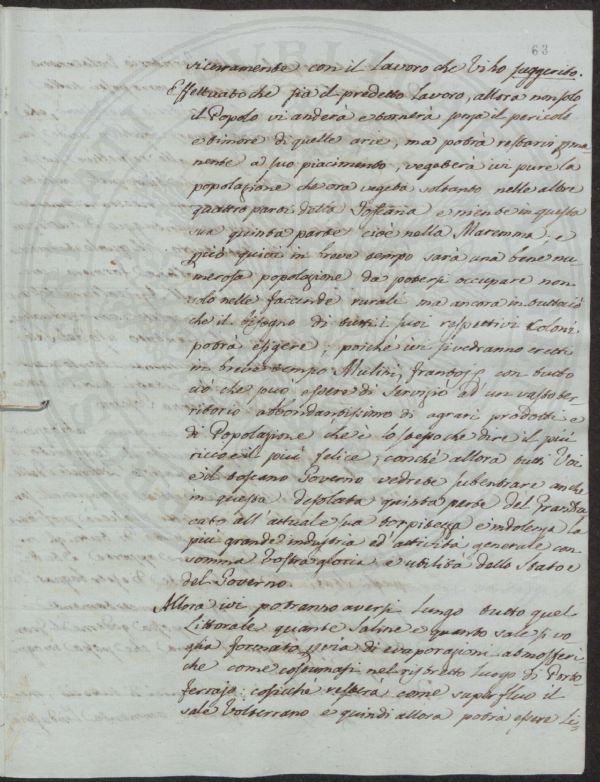 63
sicuramente con il lavoro che Vi ho suggerito.
Effettuato che sia il predetto lavoro, allora non solo
il Popolo vi anderà e tornerà senza il pericolo
e timore di quelle arie, ma potrà restarvi perma
nente a suo piacimento, vegeterà ivi pure la
popolazione che ora vegeta soltanto nelle altre
quattro parti della Toscana e niente in questa
sua quinta parte cioè nella Maremma; e
più quivi in breve tempo sarà una bene nu
merosa popolazione da potersi occupare non
solo nelle faccende rurali ma ancora in tutto ciò
che il bisogno di tutti i suoi respettivi Coloni
potrà esigere; poichè ivi si vedranno eretti
in breve tempo Mulini, Frantoj con tutto
ciò che può essere di servizio ad un vasto ter
ritorio abbondantissimo di agrari prodotti e
di Popolazione che è lo stesso che dire il più
ricco e il più felice, con chè allora tutti Voi
e il toscano Governo vedrete subentrare anche
in questa desolata quinta parte del Grandu
cato all'attuale sua torpidezza e indolenza la
più grande industria ed attività generale con
somma Vostra gloria e utilità dello Stato e
del Governo.
Allora ivi potranno aversi lungo tutto quel
Littorale quante Saline e quanto sale si vo
glia formato per via di evaporazioni atmosferi
che come costumasi nel ristretto luogo di Porto
ferrajo: cosicchè resterà come superfluo il
sale Volterrano e quindi allora potrà essere Li=